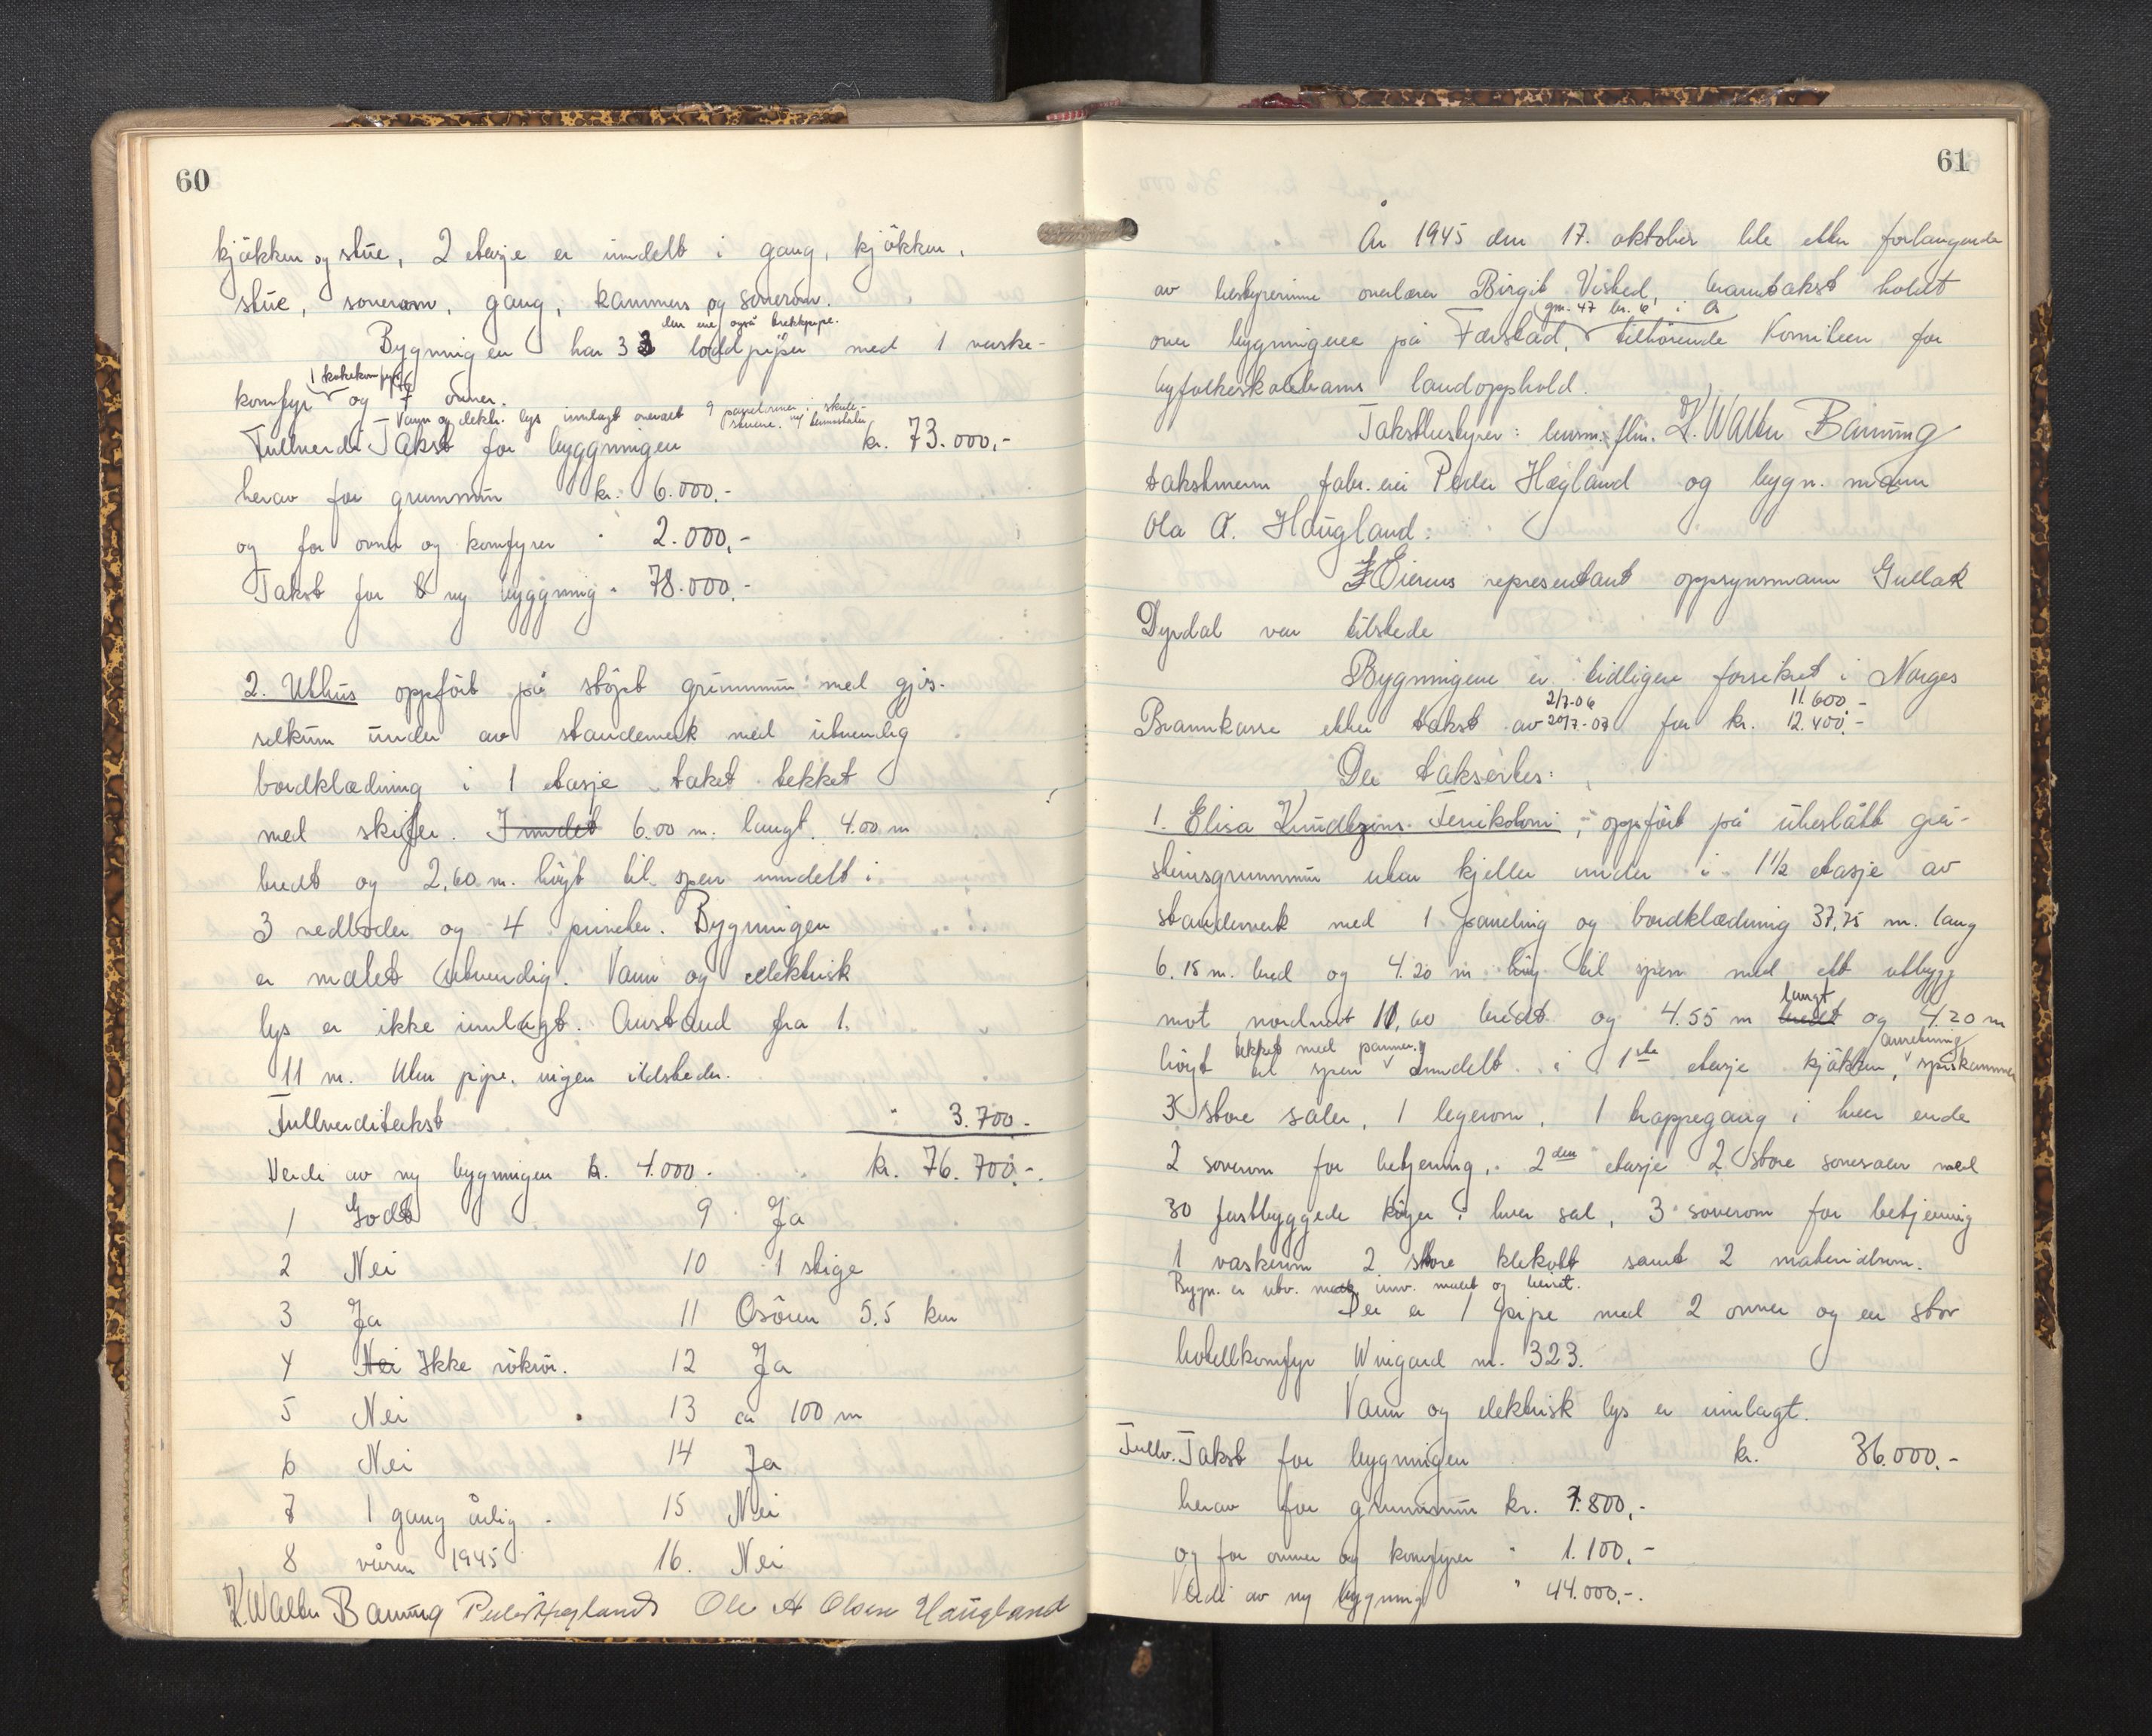 60
kjökken og stue, 2 etasje er inndelt i gang, kjökken,
stue, soverom, gang, kammers og soverom.
den ene også trekkpipe.
Bygningen har 3 loddpiper med 1 vaske-
1 kokekomfyr
komfyr og 7 ovner.
Vann og elektr. lys innlagt overalt 9 panelovner i skule-
stuene.
Fullverdi Takst for byggningen kr. 73.000,-
herav for grunnmur kr. 6.000,-
og for ovner og komfyrer " 2.000,-
Takst for ny byggning " 78.000,-
2. Uthus oppfört på stöpt grunnmur med gjös-
selkum under av standerverk med utvendig
bordklædning i 1 etasje taket tekket
med skifer. Inndelt 6.00 m. langt, 4.00 m
bredt og 2,60 m. höyt til sper inndelt i
3 vedboder og 4 priveter. Bygningen
er malet utvendig. Vann og elektrisk
lys er ikke innlagt. Avstand fra 1.
11 m. Uten pipe, ingen ildsteder.
Fullverditakst " 3.700-
Verdi av ny bygningen kr. 4.000.- kr. 76.700.-
1 Godt 9 Ja
2 Nei 10 1 stige
3 Ja 11 Osören 5.5 km
4 Nei Ikke rökrör. 12 Ja
5 Nei 13 ca 100 m
6 Nei 14 Ja
7 1 gang årlig - 15 Nei
8 våren 1945 16. Nei
K. Walter Banung Peder Hægland Ole A Olsen Haugland
61
År 1945 den 17. oktober ble etter forlangende
av bestyrerinne overlærer Birgit Visted, branntakst holdt
gnr. 47 br. 6 i Os
over bygningene på Færstad, tilhörende Komiteen for
byfolkeskolebarns landopphold.
Takstbestyrer: lensm. flm. K. Walter Banung
takstmenn fabr. eier Peder Hægland og bygn. mann
Ola A. Haugland.
Eierens representant oppsynsmann Gullak
Dyrdal var tilstede
Bygningene er tidligere forsikret i Norges
2/7-06 11.600,-
Brannkasse etter takst av 20/7-07 for kr. 12.400,-
Der takseres:
1. Elisa Knudtzons Feriekoloni, oppfört på uheslått grå-
steinsgrunnmur uten kjeller under i 1½ etasje av
standerverk med 1 paneling og bordklædning 37,75 m. lang
6.15 m. bred og 4.20 m hög til sper med ett utbygg
langt
mot nordvest 11,60 bredt og 4.55 m bredt og 4.20 m
tekket med panner. anretning
höyt til sper inndelt i 1ste etasje kjökken, spiskammer
3 store saler, 1 legerom, 1 trappegang i hver ende
2 soverom for betjening, 2den etasje 2 store sovesaler med
30 fastbyggede köyer i hver sal, 3 soverom for betjening
1 vaskerom 2 store klekott samt 2 materialrom.
Bygn. er utv. malt innv. malet og beiset.
Der er 1 pipe med 2 ovner og en stor
hotellkomfyr Wingard nr. 323.
Vann og elektrisk lys er innlagt.
Fullv. Takst for bygningen kr. 36.000.-
herav for grunnmur kr. 1.800,-
og for ovner og komfyrer " 1.100,-
Verdi av ny bygning " 44.000,-.